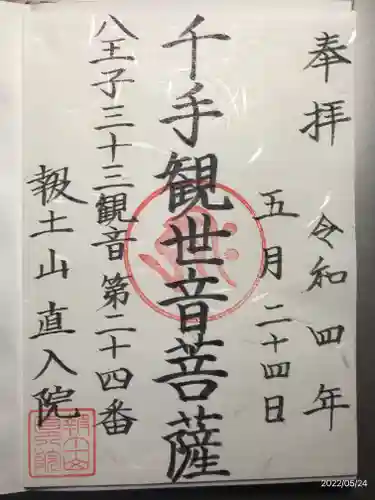 奉拝 令和四年
五月二十四日
千手観世音菩薩
八王子三十三観音 第二十四番
報土山直入院
2022/05/24